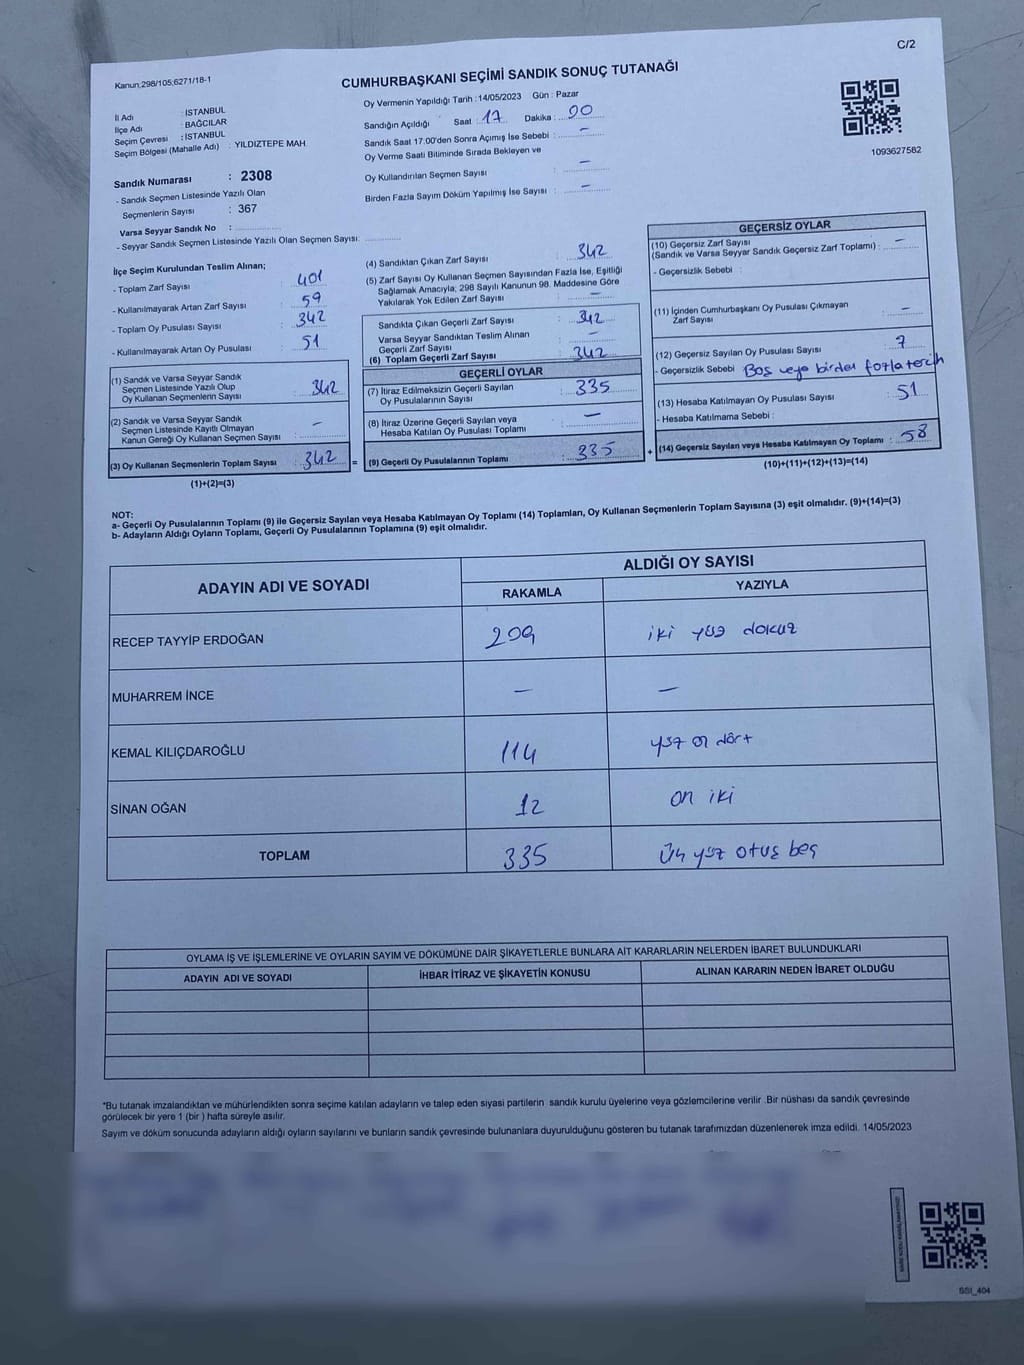 C/2
Kanun:298/105;6271/18-1
CUMHURBAŞKANI SEÇİMİ SANDIK SONUÇ TUTANAĞI
Oy Vermenin Yapıldığı Tarih : 14/05/2023 Gün : Pazar
İl Adı : İSTANBUL
İlçe Adı : BAĞCILAR
Seçim Çevresi : İSTANBUL
Seçim Bölgesi (Mahalle Adı) : YILDIZTEPE MAH.
Sandık Numarası : 2308
- Sandık Seçmen Listesinde Yazılı Olan
Seçmenlerin Sayısı : 367
Varsa Seyyar Sandık No :
- Seyyar Sandık Seçmen Listesinde Yazılı Olan Seçmen Sayısı:
Sandığın Açıldığı Saat : 17 Dakika : 00
Sandık Saat 17:00'den Sonra Açımış İse Sebebi : –
Oy Verme Saati Bitiminde Sırada Bekleyen ve
Oy Kullandırılan Seçmen Sayısı : –
Birden Fazla Sayım Döküm Yapılmış İse Sayısı : –
1093627582
İlçe Seçim Kurulundan Teslim Alınan;
- Toplam Zarf Sayısı : 401
- Kullanılmayarak Artan Zarf Sayısı : 59
- Toplam Oy Pusulası Sayısı : 342
- Kullanılmayarak Artan Oy Pusulası : 51
(1) Sandık ve Varsa Seyyar Sandık
Seçmen Listesinde Yazılı Olup
Oy Kullanan Seçmenlerin Sayısı : 342
(2) Sandık ve Varsa Seyyar Sandık
Seçmen Listesinde Kayıtlı Olmayan
Kanun Gereği Oy Kullanan Seçmen Sayısı : –
(3) Oy Kullanan Seçmenlerin Toplam Sayısı : 342
(1)+(2)=(3)
=
(4) Sandıktan Çıkan Zarf Sayısı : 342
(5) Zarf Sayısı Oy Kullanan Seçmen Sayısından Fazla İse, Eşitliği
Sağlamak Amacıyla; 298 Sayılı Kanunun 98. Maddesine Göre
Yakılarak Yok Edilen Zarf Sayısı : –
Sandıkta Çıkan Geçerli Zarf Sayısı : 342
Varsa Seyyar Sandıktan Teslim Alınan
Geçerli Zarf Sayısı : –
(6) Toplam Geçerli Zarf Sayısı : 342
GEÇERLİ OYLAR
(7) İtiraz Edilmeksizin Geçerli Sayılan
Oy Pusulalarının Sayısı : 335
(8) İtiraz Üzerine Geçerli Sayılan veya
Hesaba Katılan Oy Pusulası Toplamı : –
(9) Geçerli Oy Pusulalarının Toplamı : 335
+
GEÇERSİZ OYLAR
(10) Geçersiz Zarf Sayısı
(Sandık ve Varsa Seyyar Sandık Geçersiz Zarf Toplamı) : –
- Geçersizlik Sebebi :
(11) İçinden Cumhurbaşkanı Oy Pusulası Çıkmayan
Zarf Sayısı : –
(12) Geçersiz Sayılan Oy Pusulası Sayısı : 7
- Geçersizlik Sebebi : Boş veya birden fazla tercih
(13) Hesaba Katılmayan Oy Pusulası Sayısı : 51
- Hesaba Katılmama Sebebi :
(14) Geçersiz Sayılan veya Hesaba Katılmayan Oy Toplamı : 58
(10)+(11)+(12)+(13)=(14)
NOT:
a- Geçerli Oy Pusulalarının Toplamı (9) ile Geçersiz Sayılan veya Hesaba Katılmayan Oy Toplamı (14) Toplamları, Oy Kullanan Seçmenlerin Toplam Sayısına (3) eşit olmalıdır. (9)+(14)=(3)
b- Adayların Aldığı Oyların Toplamı, Geçerli Oy Pusulalarının Toplamına (9) eşit olmalıdır.
ADAYIN ADI VE SOYADI
ALDIĞI OY SAYISI
RAKAMLA YAZIYLA
RECEP TAYYİP ERDOĞAN 209 iki yüz dokuz
MUHARREM İNCE – –
KEMAL KILIÇDAROĞLU 114 yüz on dört
SİNAN OĞAN 12 on iki
TOPLAM 335 Üç yüz otuz beş
OYLAMA İŞ VE İŞLEMLERİNE VE OYLARIN SAYIM VE DÖKÜMÜNE DAİR ŞİKAYETLERLE BUNLARA AİT KARARLARIN NELERDEN İBARET BULUNDUKLARI
ADAYIN ADI VE SOYADI İHBAR İTİRAZ VE ŞİKAYETİN KONUSU ALINAN KARARIN NEDEN İBARET OLDUĞU
*Bu tutanak imzalandıktan ve mühürlendikten sonra seçime katılan adayların ve talep eden siyasi partilerin sandık kurulu üyelerine veya gözlemcilerine verilir .Bir nüshası da sandık çevresinde
görülecek bir yere 1 (bir ) hafta süreyle asılır.
Sayım ve döküm sonucunda adayların aldığı oyların sayılarını ve bunların sandık çevresinde bulunanlara duyurulduğunu gösteren bu tutanak tarafımızdan düzenlenerek imza edildi. 14/05/2023
SSI_404